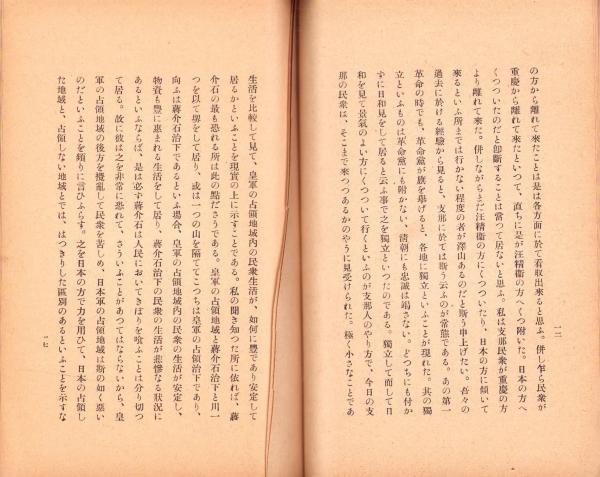 の方から離れて來たことは是は各方面に於て看取出來ると思ふ。併し乍ら民衆が
重慶から離れて來たといつて、直ちに是が汪精衞の方へくつ附いた。日本の方へ
くつついたのだと卽斷することは當つて居ないと思ふ。私は支那民衆が重慶の方
より離れて來た。併しながらまだ汪精衞の方にくつついたり、日本の方に傾いて
來るといふ所までは行かない程度の者が澤山あるのだと斯う申上げたい。吾々の
過去に於ける經驗から見ると、支那に於ては斯う云ふのが常態である。あの第一
革命の時でも、革命黨が旗を擧げると、各地に獨立といふことが現れた。其の獨
立といふものは革命黨にも附かない、淸朝にも忠誠は竭さない。どつちにも付か
ずに日和見をして居ると云ふ事で之を獨立といつたのである。獨立して而して日
和を見て景氣のよい方にくつついて行くといふのが支那人のやり方で、今日の支
那の民衆は、そこまで來つつあるかのやうに見受けられた。極く小さなことであ
生活を比較して見て、皇軍の占領地域內の民衆生活が、如何に豐であり安定して
居るかといふことを現實の上に示すことである。私の聞き知つた所に依れば、蔣
介石の最も恐れる所は此の點ださうである。皇軍の占領地域と蔣介石治下と川一
つを以て堺をして居り、或は一つの山を隔ててこつちは皇軍の占領治下であり、
向ふは蔣介石治下であるといふ場合、皇軍の占領地域內の民衆の生活が安定し、
物資も豐に惠まれる生活をして居り、蔣介石治下の民衆の生活が悲慘なる狀況に
あるといふならば、是は必ず蔣介石は人民においてきぼりを喰ふことは分り切つ
て居る。故に彼は之を非常に恐れて、さういふことがあつてはならないから、皇
軍の占領地域の後方を攪亂して民衆を苦しめ、日本軍の占領地域は斯の如く惡い
のだといふことを頻りに言ひふらす。之を日本の方で力を用ひて、日本の占領し
た地域と、占領しない地域とでは、はつきりした區別のあるといふことを示すな
一七